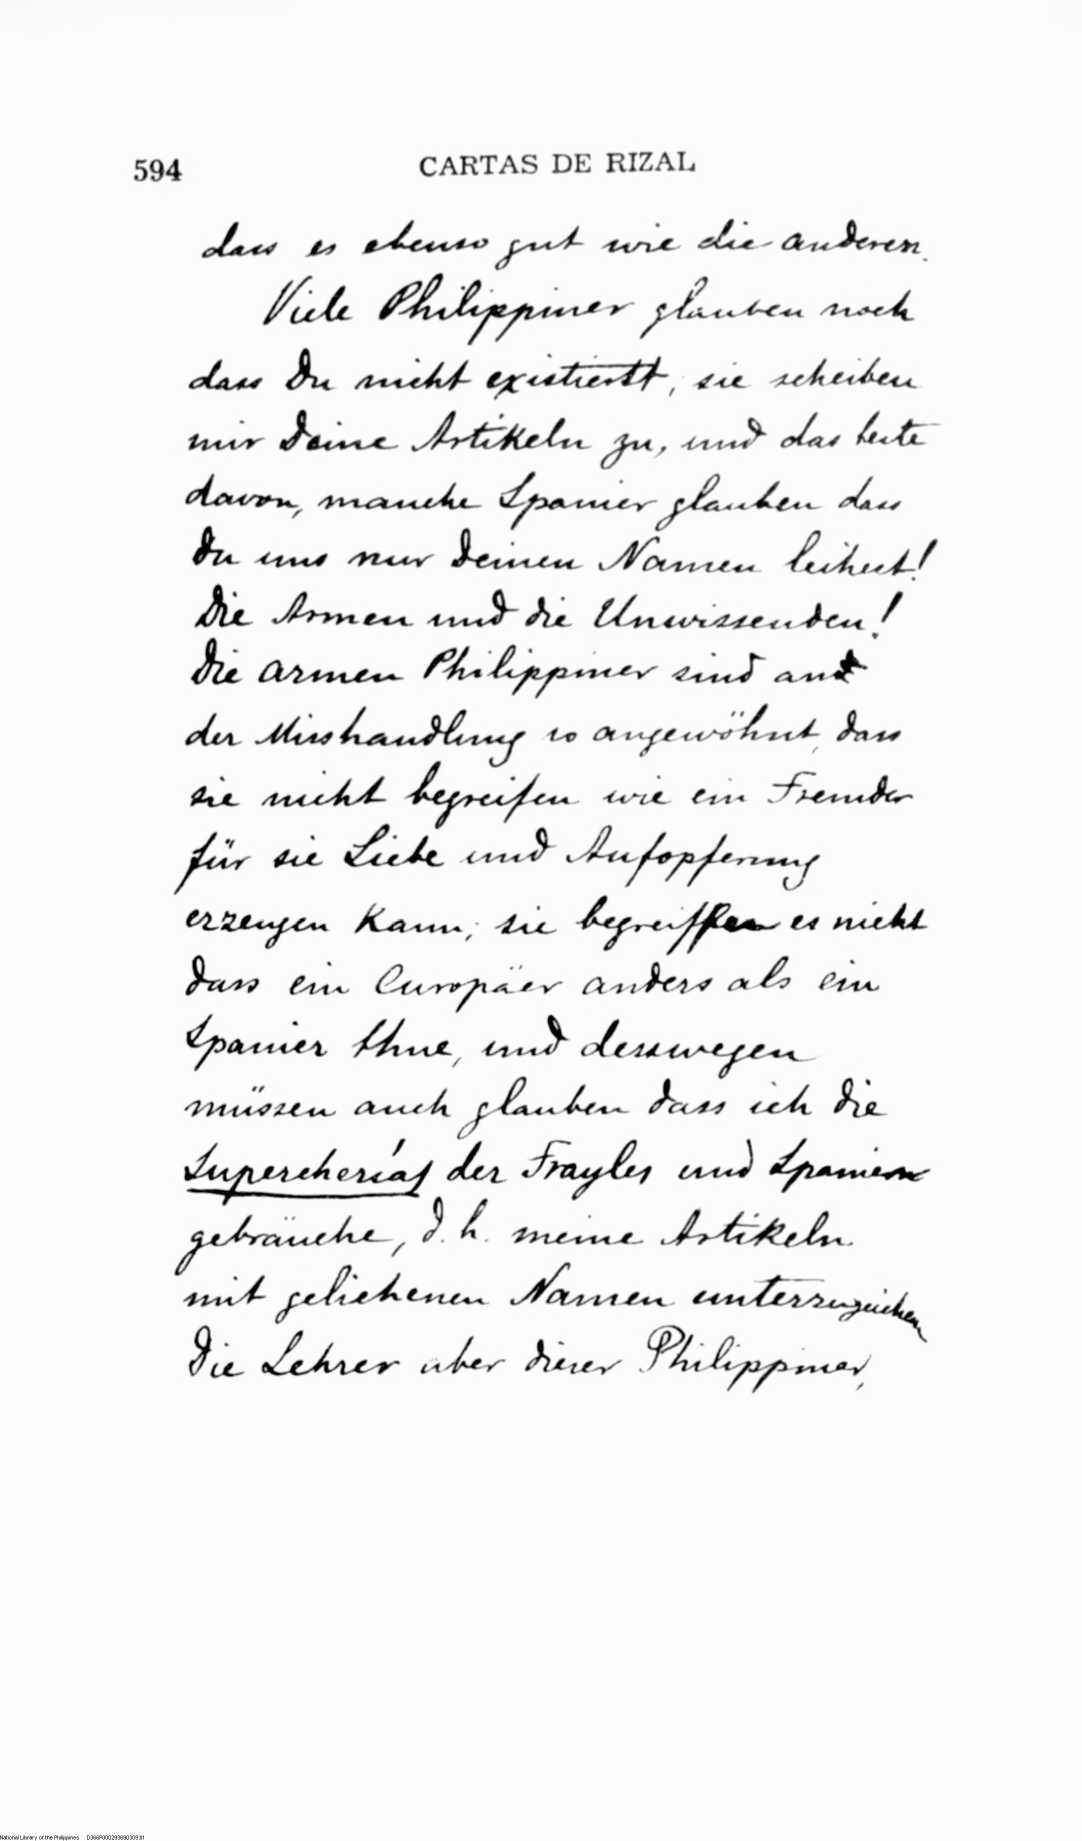 594 CARTAS DE RIZAL
dass es ebenso gut wie die anderen.
Viele Philippiner glauben noch
dass Du nicht existierst, sie scheiben
mir Deine Artikeln zu, und das beste
davon, manche Spanier glauben dass
Du uns nur Deinen Namen leihest!
Die Armen und die Unwissenden!
Die armen Philippiner sind an
der Misshandlung so angewöhnt, dass
sie nicht begreifen wie ein Fremder
für sie Liebe und Aufopferung
erzeugen kann; sie begreiffen es nicht
dass ein Europäer anders als ein
Spanier thue, und desswegen
müssen auch glauben dass ich die
Supercherías der Frayles und Spaniern
gebräuche, d. h. meine Artikeln
mit geliehenen Namen unterzuzeichen
Die Lehrer aber dieser Philippiner,
National Library of the Philippines